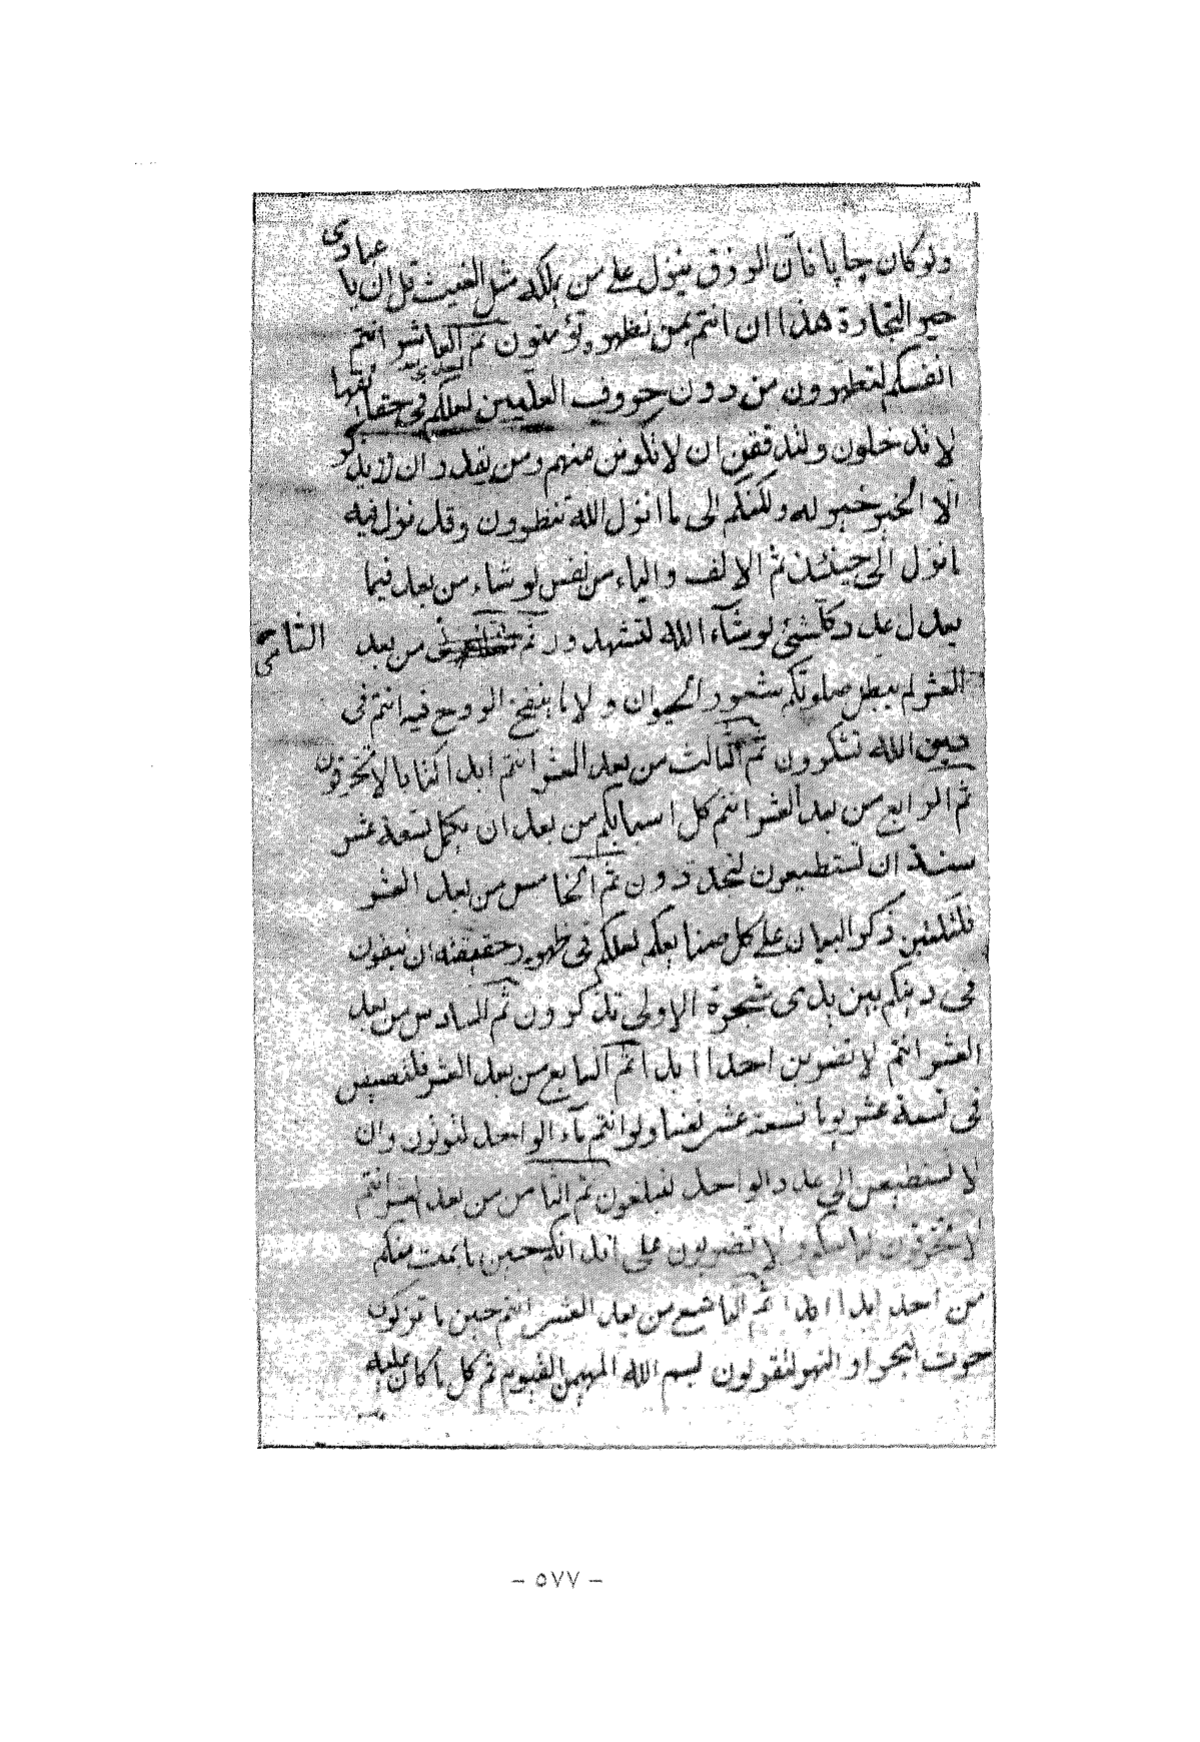 عبادی
ولو كان چاپا فان الرزق ينزل على من يملكه مثل الغيث قل ان يا
خير التجارة هذا ان انتم بمن نظهره تؤمنون ثم العاشر انتم
انفسكم لتطهرون من دون حروف العليين لعلكم في
لا تدخلون ولتدققن ان لا تكونن منهم ومن يقدر ان
الا الخبير خبير له ولكنكم الى ما انزل الله تنظرون وقد نزل فيه
ما نزل الى حينئذ ثم الالف والياء من نفس لو شاء من بعد فيما
يعدل عدد كلشئ لو شاء الله لتشهدون ثم من بعد الثاني
العشر لم يبطل صلوتكم شعور الحيوان ولا ما ينفخ الروح فيه انتم في
دين الله تشكرون ثم الثالث من بعد العشر انتم ابدا كتابا لا تخرقون
ثم الرابع من بعد العشر انتم كل اسبابكم من بعد ان يكمل تسعة عشر
سنة ان تستطيعون لتجددون ثم الخامس من بعد العشر
ذكر البيان على كل صنايعكم لعلكم في ظهور حقيقته ان تتقون
في دينكم بين يدى شجرة الاولى تذكرون ثم السادس من بعد
العشر انتم لا تضربن احدا ابدا ثم السابع من بعد العشر فلتضيفن
في تسعة عشر يوما تسعة عشر نفسا ولو انتم ماء الواحد لتؤتون وان
لا تستطيعن الى عدد الواحد لتبلغون ثم الثامن من بعد العشر انتم
لا تخرقون ولا تضربون على انكم حين ما يمت منكم
من احد ابدا ابدا ثم التاسع من بعد العشر انتم حين ما تزكون
حوت البحر او النهر لتقولون بسم الله المهيمن القيوم ثم كل ما كان عليه
- ٥٧٧ -